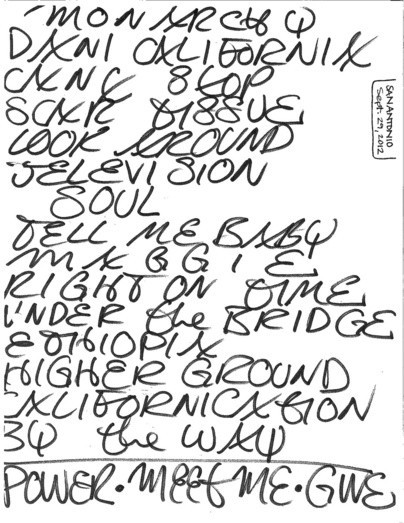 MONARCHY
DANI CALIFORNIA
CANT STOP
SCAR TISSUE
LOOK AROUND
TELEVISION
SOUL
TELL ME BABY
MAGGIE
RIGHT ON TIME
UNDER the BRIDGE
ETHIOPIA
HIGHER GROUND
CALIFORNICATION
BY the WAY
POWER · MEET ME · GIVE
SAN ANTONIO
Sept. 29, 2012